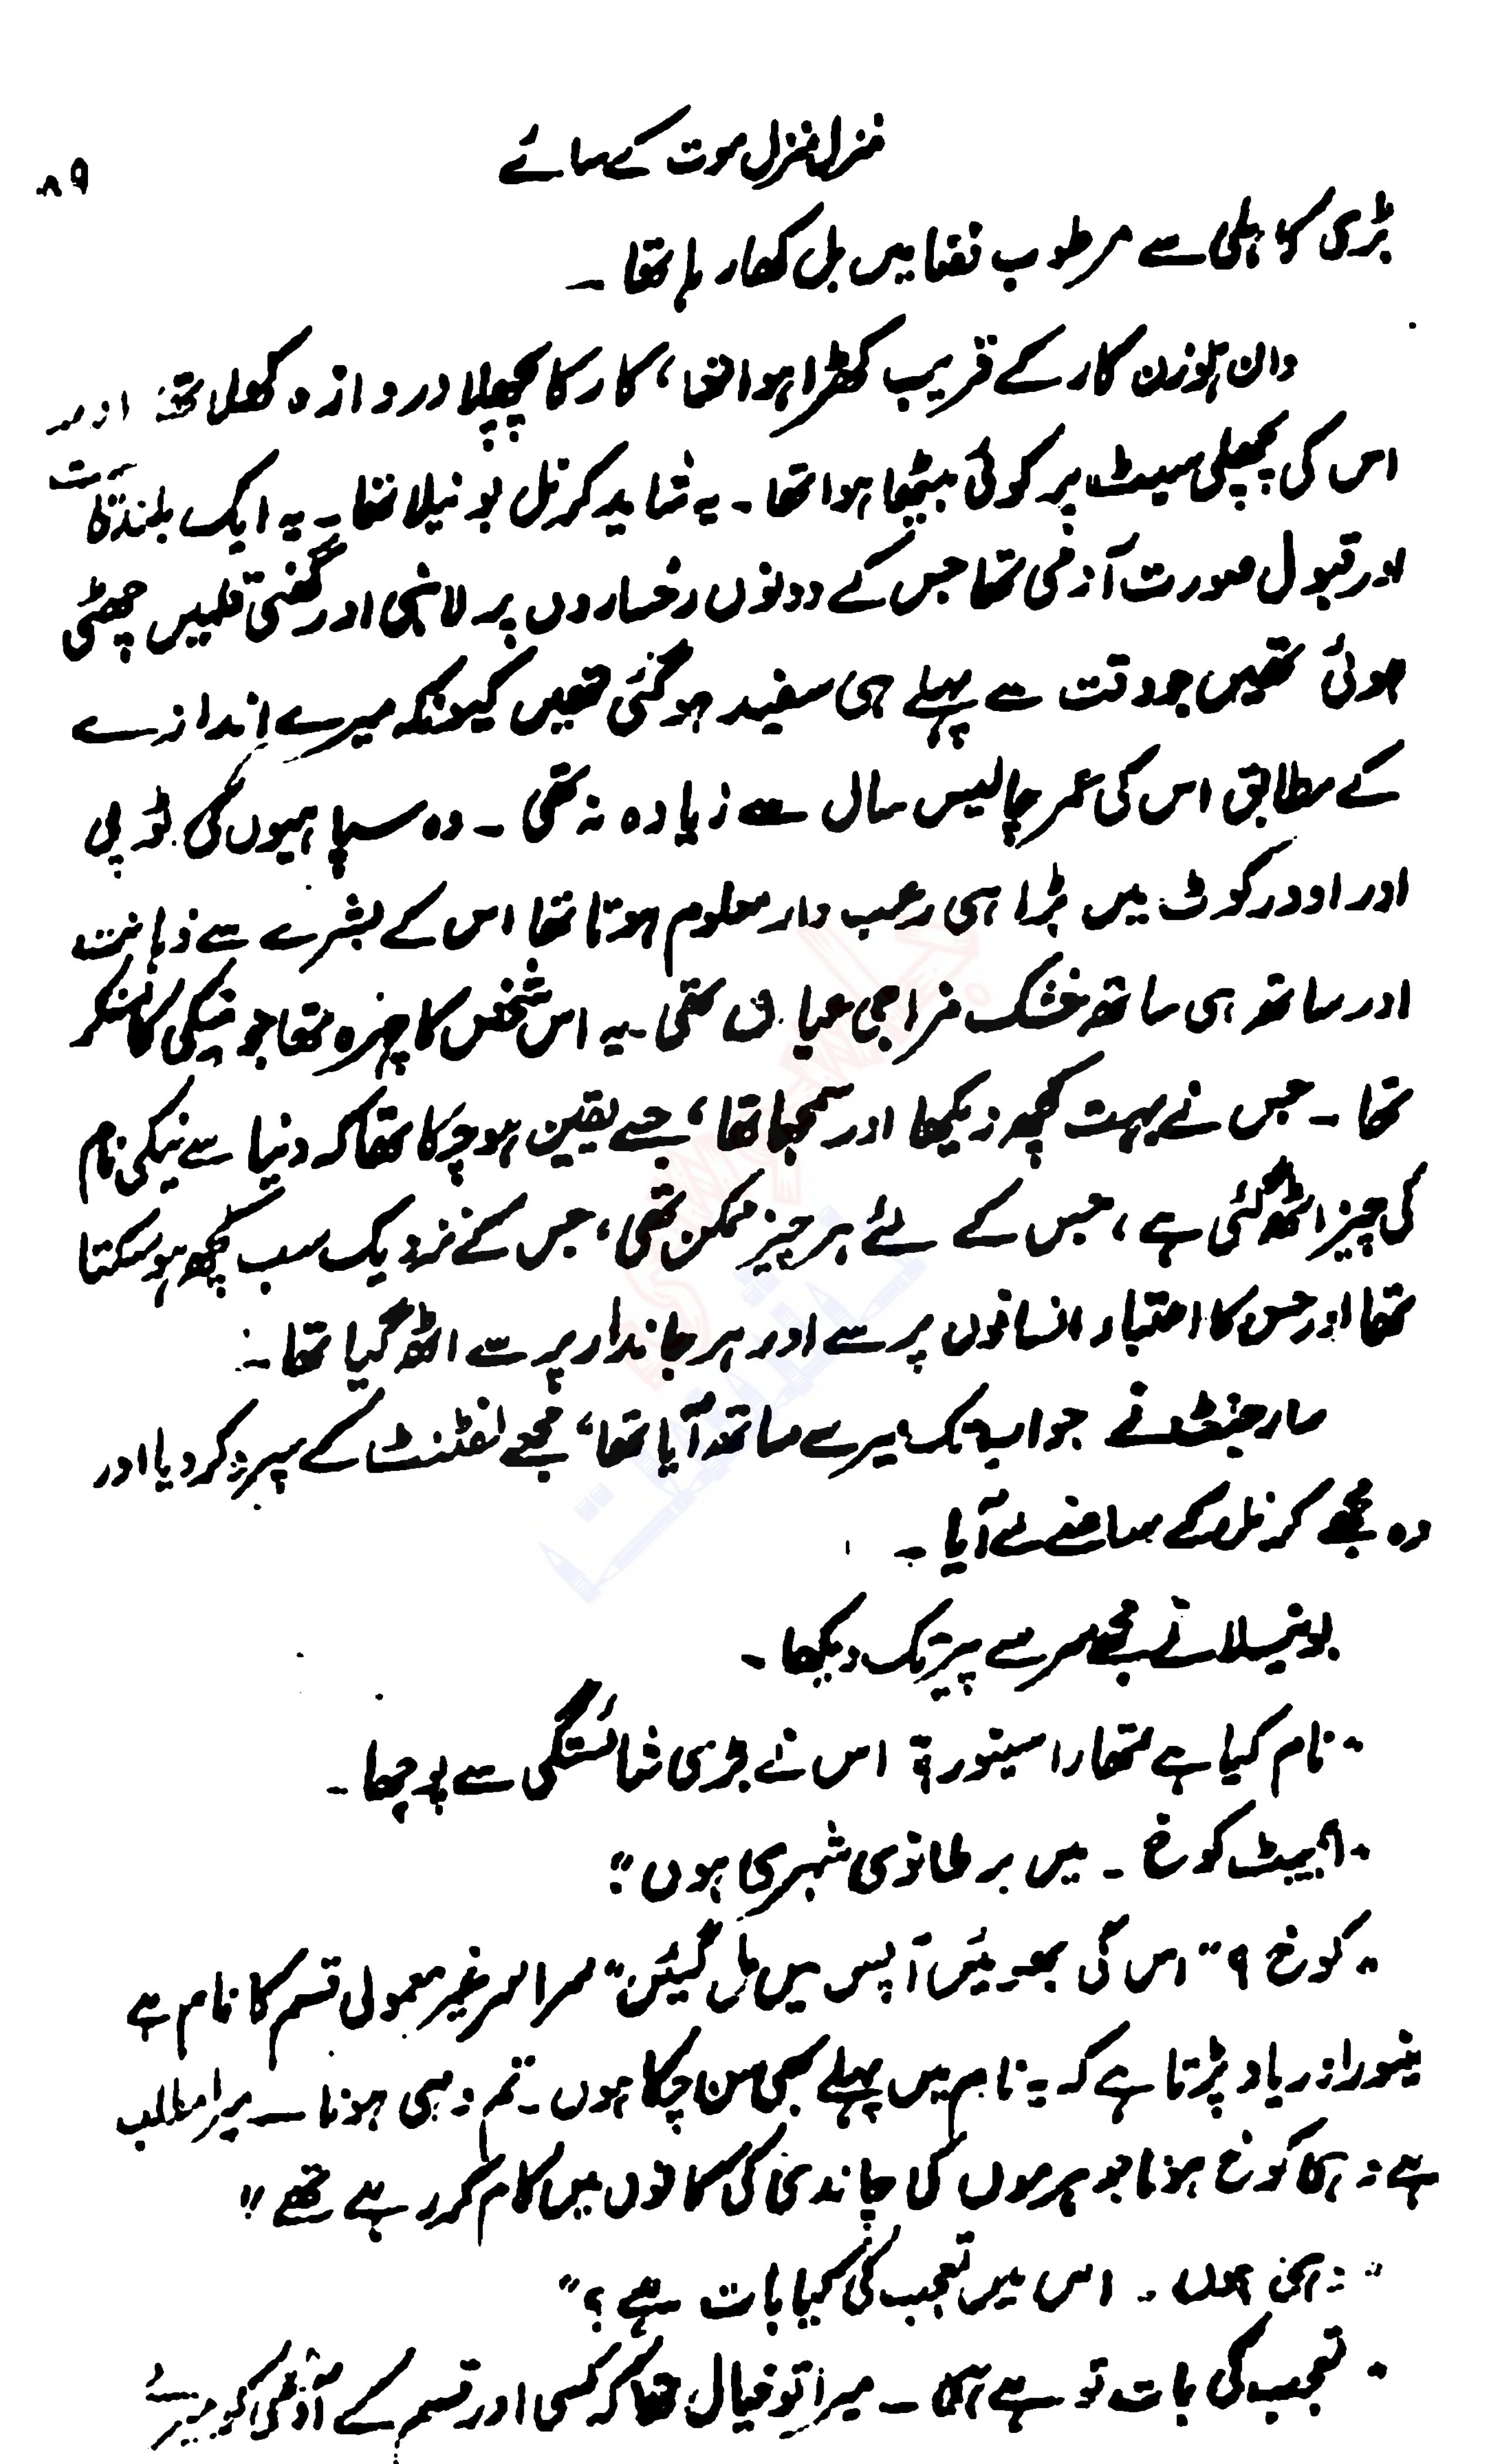 منزل منزل موت کے سائے
۸۹
بڑی کاہلی سے مرطوب فضا میں بل کھا رہا تھا ۔
وان ہلوزن کار کے قریب کھڑا ہوا تھا، کار کا پچھلا دروازہ کھلا تھا اور
اس کی پچھلی سیٹ پر کوئی بیٹھا ہوا تھا ۔ یہ شاید کرنل بونیلا تھا ۔ یہ ایک بلند قامت
اور قبول صورت آدمی تھا جس کے دونوں رخساروں پر لانبی اور گھنی قلمیں چھٹی
ہوئی تھیں جو وقت سے پہلے ہی سفید ہو گئی تھیں کیونکہ میرے اندازے
کے مطابق اس کی عمر چالیس سال سے زیادہ نہ تھی ۔ وہ سپاہیوں کی ٹوپی
اور اوورکوٹ میں بڑا ہی رعب دار معلوم ہوتا تھا اس کے بشرے سے ذہانت
اور ساتھ ہی ساتھ خشک مزاجی عیاں تھی ۔ یہ اس شخص کا چہرہ تھا جو نیکی کا منکر
تھا ۔ جس نے بہت کچھ دیکھا اور سمجھا تھا، جسے یقین ہو چکا تھا کہ دنیا سے نیکی نام
کی چیز اٹھ گئی ہے، جس کے لئے ہر چیز ممکن تھی، جس کے نزدیک سب کچھ ہو سکتا
تھا اور جس کا اعتبار انسانوں پر سے اور ہر جاندار پر سے اٹھ گیا تھا ۔
سارجنٹ نے جو اب تک میرے ساتھ آیا تھا، مجھے لفٹنٹ کے سپرد کر دیا اور
وہ مجھے کرنل کے سامنے لے آیا ۔
بونیلا نے مجھے سر سے پیر تک دیکھا ۔
"نام کیا ہے تمھارا سینور؟ اس نے بڑی شائستگی سے پوچھا ۔
کورخ ۔ میں برطانوی شہری ہوں"
"کورخ؟" اس کی بھویں آپس میں مل گئیں "سراسر غیر معمولی قسم کا نام ہے
سینور اور یاد پڑتا ہے کہ یہ نام میں پہلے بھی سن چکا ہوں ۔ تم وہی ہونا — میرا مطلب
ہے وہی کورخ ہونا جو ہرموں کی چاندی کی کانوں میں کام کر رہے تھے"
"وہی ہوں ۔ اس میں تعجب کی کیا بات ہے؟"
"تعجب کی بات تو ہے ہی ۔ میرا تو خیال تھا کہ کسی اور قسم کے آدمی کو میرے